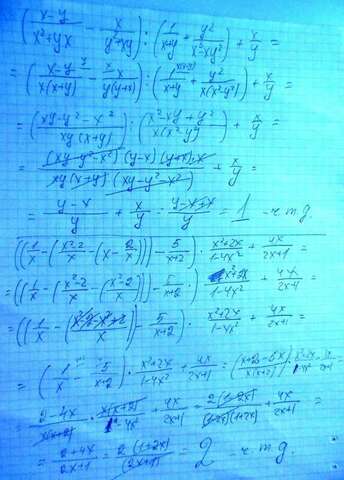 ((x-y)/(x²+yx) - x/(y²+xy)) : (1/(x+y) + y²/(x³-xy²)) + x/y =
= ((x-y)/(x(x+y)) - x/(y(y+x))) : (1/(x+y) + y²/(x(x²-y²))) + x/y =
= ((xy-y²-x²)/(xy(x+y))) : ((x²-xy+y²)/(x(x²-y²))) + x/y =
= ((xy-y²-x²)(y-x)(y+x)·x)/(xy(x+y)·(xy-y²-x²)) + x/y =
= (y-x)/y + x/y = (y-x+x)/y = 1 - ч.т.д.
((1/x - ((x²-2)/x - (x - 2/x))) - 5/(x+2)) · (x²+2x)/(1-4x²) + 4x/(2x+1) =
= ((1/x - ((x²-2)/x - (x²-2)/x)) - 5/(x+2)) · (x²+2x)/(1-4x²) + 4x/(2x+1) =
= ((1/x - (x²-2-x²+2)/x) - 5/(x+2)) · (x²+2x)/(1-4x²) + 4x/(2x+1) =
= (1/x - 5/(x+2)) · (x²+2x)/(1-4x²) + 4x/(2x+1) = ((x+2-5x)/(x(x+2))) ·
= (2-4x)/(x(x+2)) · x(x+2)/(1-4x²) + 4x/(2x+1) = 2(1-2x)/((1-2x)(1+2x)) + 4x/(2x+1) =
= (2+4x)/(2x+1) = 2(1+2x)/(2x+1) = 2 - ч.т.д.